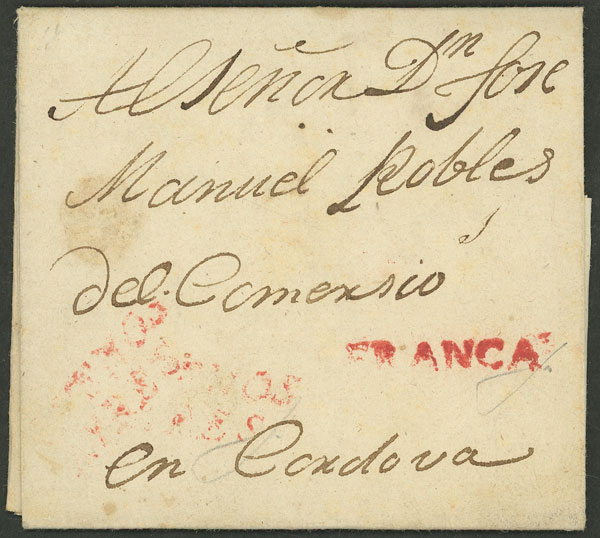 Al señor Dn Jose
Manuel Robles
del Comersio
FRANCA
en Cordova